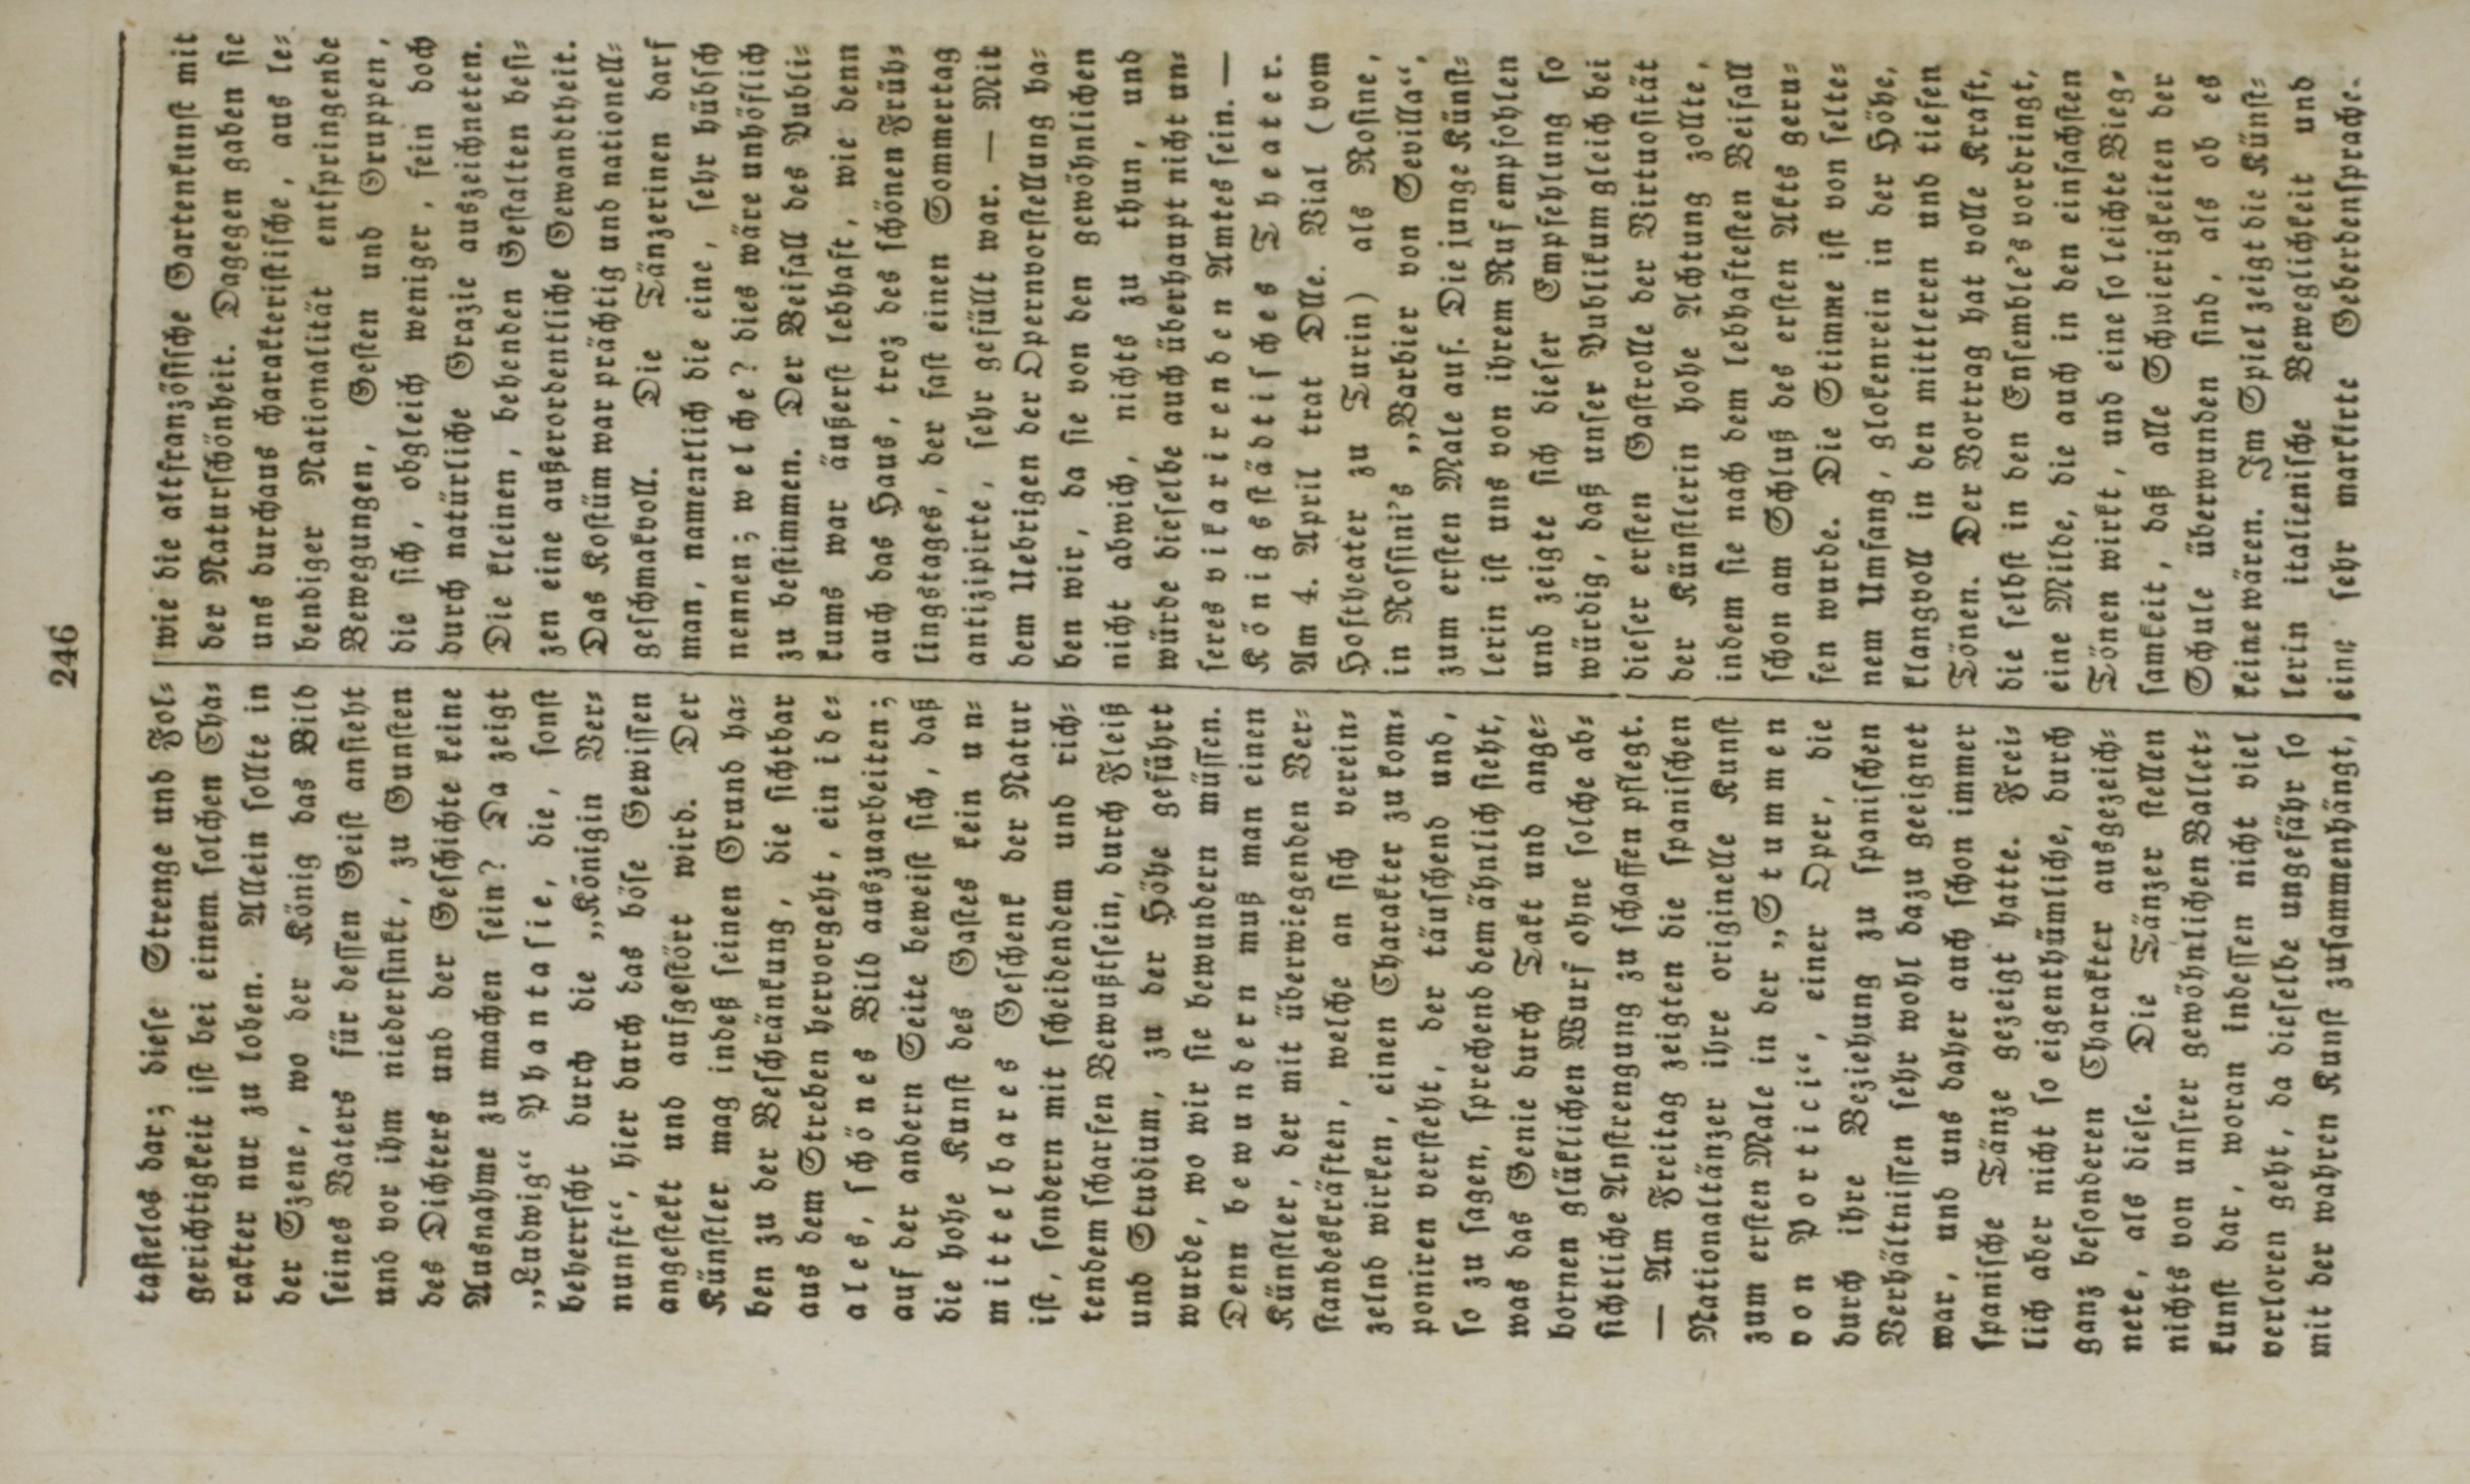 246
tasielos dar; diese Strenge und Fol⸗
gerichtigkeit ist bei einem solchen Cha⸗
rakter nur zu loben. Allein sollte in
der Szene, wo der König das Bild
seines Vaters für dessen Geist ansieht
und vor ihm niedersinkt, zu Gunsten
des Dichters und der Geschichte keine
Ausnahme zu machen sein? Da zeigt
„Ludwig“ Phantasie, die, sonst
beherrscht durch die „Königin Ver⸗
nunft“, hier durch das böse Gewissen
angestekt und aufgestört wird. Der
Künstler mag indeß seinen Grund ha⸗
ben zu der Beschränkung, die sichtbar
aus dem Streben hervorgeht, ein ide⸗
ales, schönes Bild auszuarbeiten;
auf der andern Seite beweist sich, daß
die hohe Kunst des Gastes kein un⸗
mittelbares Geschenk der Natur
ist, sondern mit scheidendem und rich⸗
tendem scharfen Bewußtsein, durch Fleiß
und Studium, zu der Höhe geführt
wurde, wo wir sie bewundern müssen.
Denn bewundern muß man einen
Künstler, der mit überwiegenden Ver⸗
standeskräften, welche an sich verein⸗
zelnd wirken, einen Charakter zu kom⸗
poniren versteht, der täuschend und,
so zu sagen, sprechend dem ähnlich sieht,
was das Genie durch Takt und ange⸗
bornen glüklichen Wurf ohne solche ab⸗
sichtliche Anstrengung zu schaffen pflegt.
— Am Freitag zeigten die spanischen
Nationaltänzer ihre originelle Kunst
zum ersten Male in der „Stummen
von Portici“, einer Oper, die
durch ihre Beziehung zu spanischen
Verhältnissen sehr wohl dazu geeignet
war, und uns daher auch schon immer
spanische Tänze gezeigt hatte. Frei⸗
lich aber nicht so eigenthümliche, durch
ganz besonderen Charakter ausgezeich⸗
nete, als diese. Die Tänzer stellen
nichts von unsrer gewöhnlichen Ballet⸗
kunst dar, woran indessen nicht viel
verloren geht, da dieselbe ungefähr so
mit der wahren Kunst zusammenhängt,
wie die altfranzösische Gartenkunst mit
der Naturschönheit. Dagegen gaben sie
uns durchaus charakteristische, aus le⸗
bendiger Nationalität entspringende
Bewegungen, Gesten und Gruppen,
die sich, obgleich weniger, fein doch
durch natürliche Grazie auszeichneten.
Die kleinen, behenden Gestalten besi⸗
zen eine außerordentliche Gewandtheit.
Das Kostüm war prächtig und nationell⸗
geschmakvoll. Die Tänzerinen darf
man, namentlich die eine, sehr hübsch
nennen; welche? dies wäre unhöflich
zu bestimmen. Der Beifall des Publi⸗
kums war äußerst lebhaft, wie denn
auch das Haus, troz des schönen Früh⸗
lingstages, der fast einen Sommertag
antizipirte, sehr gefüllt war. — Mit
dem Uebrigen der Opernvorstellung ha⸗
ben wir, da sie von den gewöhnlichen
nicht abwich, nichts zu thun, und
würde dieselbe auch überhaupt nicht un⸗
seres vikarirenden Amtes sein. —
Königsstädtisches Theater.
Am 4. April trat Dlle. Vial (vom
Hoftheater zu Turin) als Rosine,
in Rossini's „Barbier von Sevilla“,
zum ersten Male auf. Die junge Künst⸗
lerin ist uns von ihrem Ruf empfohlen
und zeigte sich dieser Empfehlung so
würdig, daß unser Publikum gleich bei
dieser ersten Gastrolle der Virtuosität
der Künstlerin hohe Achtung zollte,
indem sie nach dem lebhaftesten Beifall
schon am Schluß des ersten Akts geru⸗
fen wurde. Die Stimme ist von selte⸗
nem Umfang, glokenrein in der Höhe,
klangvoll in den mittleren und tiefen
Tönen. Der Vortrag hat volle Kraft,
die selbst in den Ensemble's vordringt,
eine Milde, die auch in den einfachsten
Tönen wirkt, und eine so leichte Bieg⸗
samkeit, daß alle Schwierigkeiten der
Schule überwunden sind, als ob es
keine wären. Im Spiel zeigt die Künst⸗
lerin italienische Beweglichkeit und
eine sehr markirte Geberdensprache.